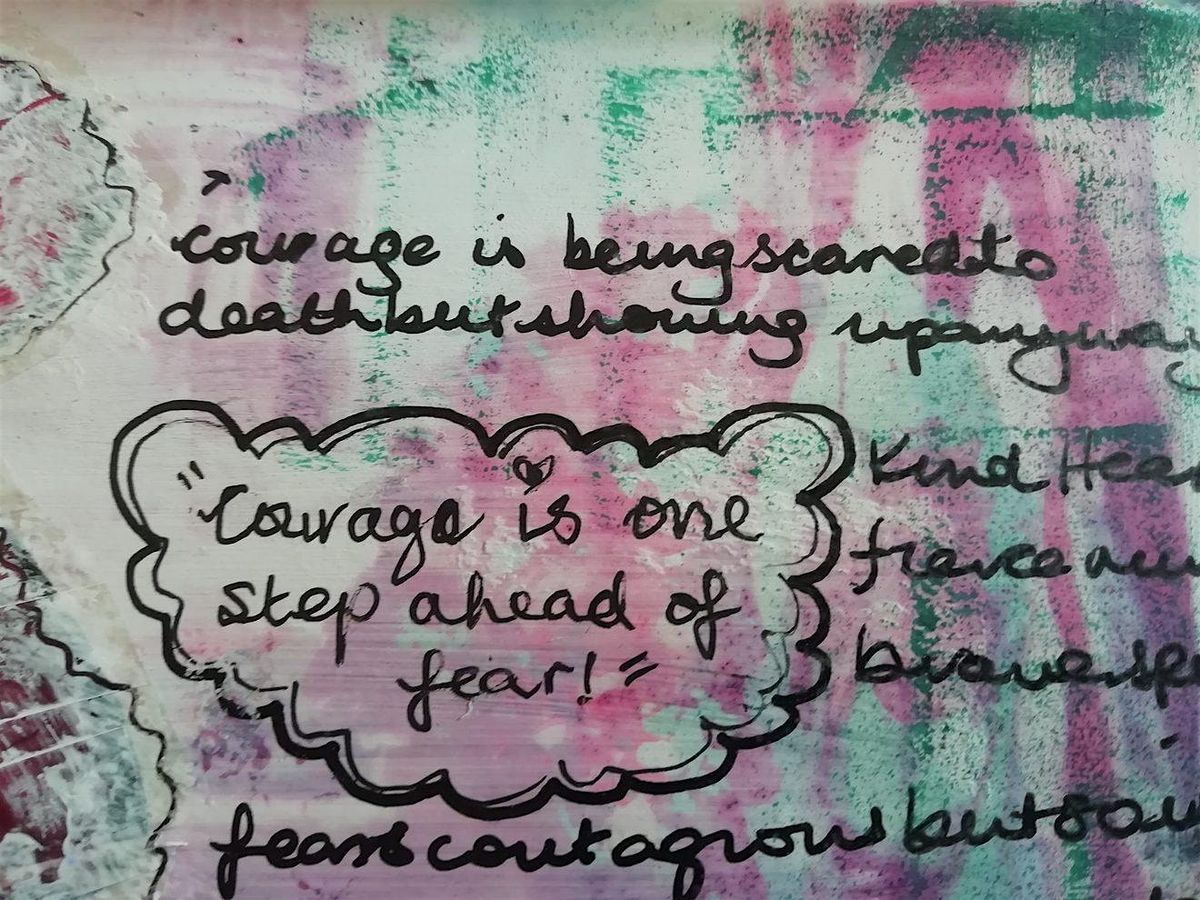 courage is being scared to
death but showing up anyway
"Courage is one
step ahead of
fear!"
Kind Hear
fierce
brave sp
fear is contagious but so